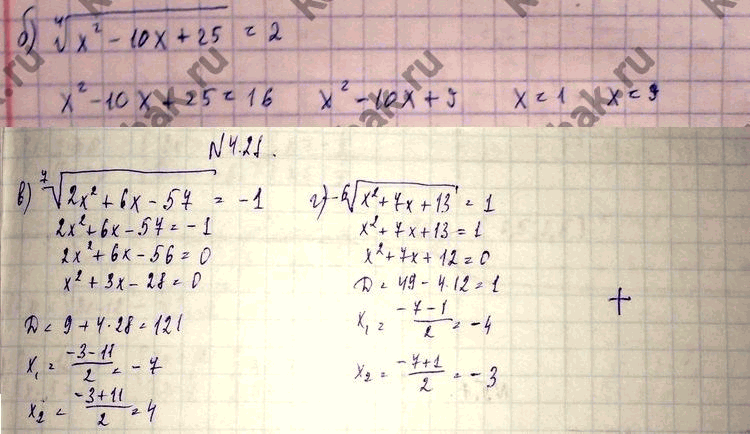 б) ⁴√(x² - 10x + 25) = 2
x² - 10x + 25 = 16 x² - 10x + 9 x = 1 x = 9
N 4.21.
в) ⁷√(2x² + 6x - 57) = -1
2x² + 6x - 57 = -1
2x² + 6x - 56 = 0
x² + 3x - 28 = 0
D = 9 + 4·28 = 121
x₁ = (-3-11)/2 = -7
x₂ = (-3+11)/2 = 4
г) ⁶√(x² + 7x + 13) = 1
x² + 7x + 13 = 1
x² + 7x + 12 = 0
D = 49 - 4·12 = 1
x₁ = (-7-1)/2 = -4
x₂ = (-7+1)/2 = -3
+